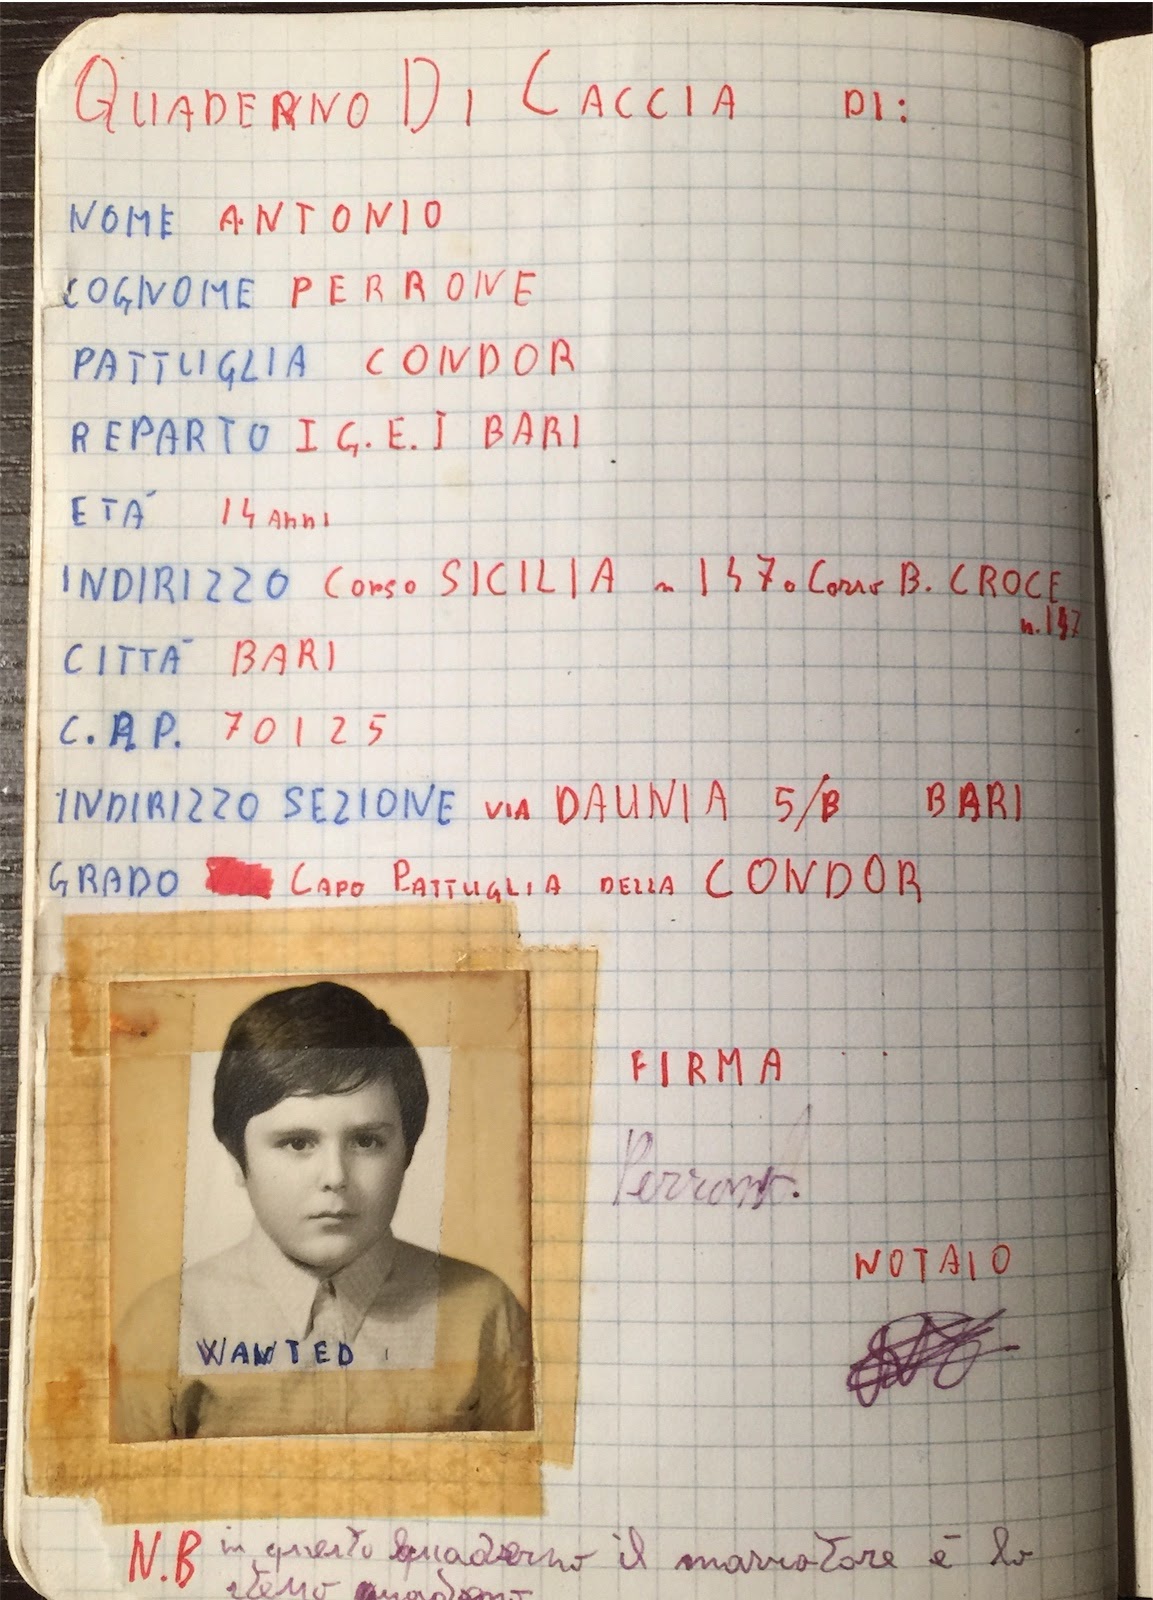 QUADERNO DI CACCIA DI:
NOME ANTONIO
COGNOME PERRONE
PATTUGLIA CONDOR
REPARTO I G.E.I BARI
ETÀ 14 Anni
INDIRIZZO Corso SICILIA n 147 o Corso B. CROCE
n.147
CITTÀ BARI
C.A.P. 70125
INDIRIZZO SEZIONE VIA DAUNIA 5/B BARI
GRADO CAPO PATTUGLIA DELLA CONDOR
FIRMA
NOTAIO
WANTED
N.B in questo quaderno il narratore è lo
stesso quaderno